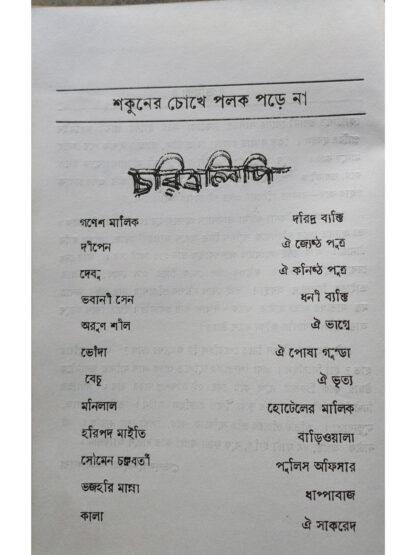 শকুনের চোখে পলক পড়ে না
চরিত্রলিপি
গণেশ মালিক দরিদ্র ব্যক্তি
দীপেন ঐ জ্যেষ্ঠ পুত্র
দেবু ঐ কনিষ্ঠ পুত্র
ভবানী সেন ধনী ব্যক্তি
অরুণ শীল ঐ ভাগ্নে
ভোঁদা ঐ পোষা গুন্ডা
বেচু ঐ ভৃত্য
মনিলাল হোটেলের মালিক
হরিপদ মাইতি বাড়িওয়ালা
সোমেন চক্রবর্তী পুলিস অফিসার
ভজহরি মান্না ধাপ্পাবাজ
কালা ঐ সাকরেদ